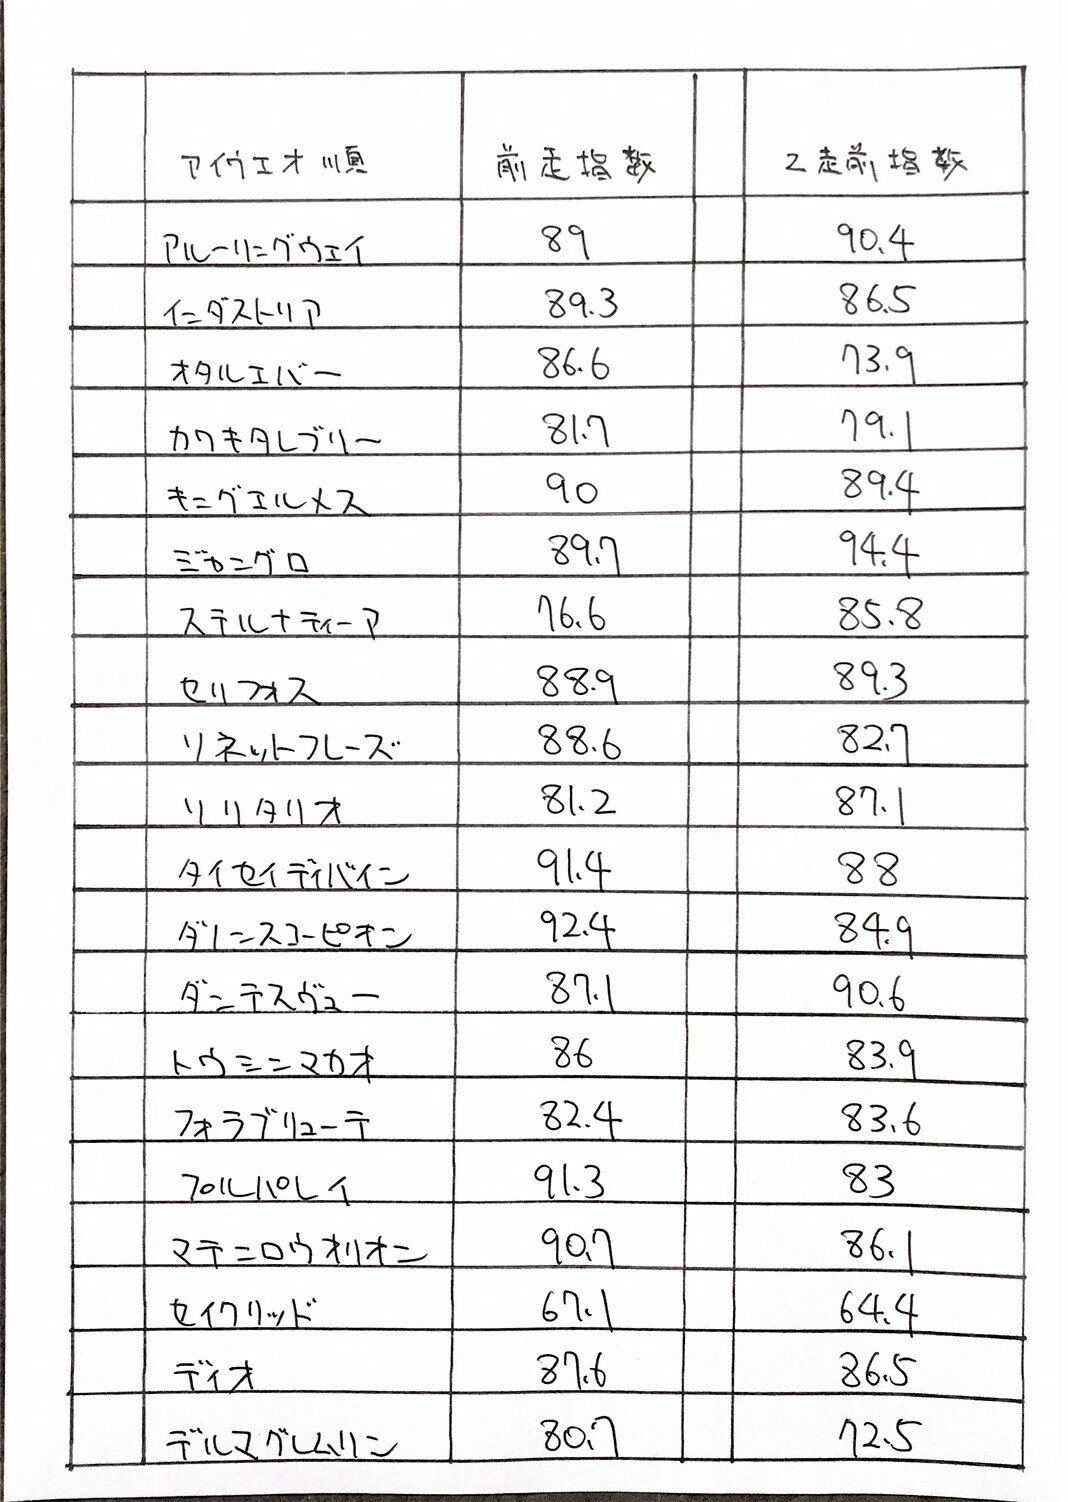 アイウエオ順 前走指数 2走前指数
アルーリングウェイ 89 90.4
インダストリア 89.3 86.5
オタルエバー 86.6 73.9
カワキタレブリー 81.7 79.1
キングエルメス 90 89.4
ジャングロ 89.7 94.4
ステルナティーア 76.6 85.8
セリフォス 88.9 89.3
ソネットフレーズ 88.6 82.7
ソリタリオ 81.2 87.1
タイセイディバイン 91.4 88
ダノンスコーピオン 92.4 84.9
ダンテスヴュー 87.1 90.6
トウシンマカオ 86 83.9
フォラブリューテ 82.4 83.6
プルパレイ 91.3 83
マテンロウオリオン 90.7 86.1
セイクリッド 67.1 64.4
ディオ 87.6 86.5
デルマグレムリン 80.7 72.5